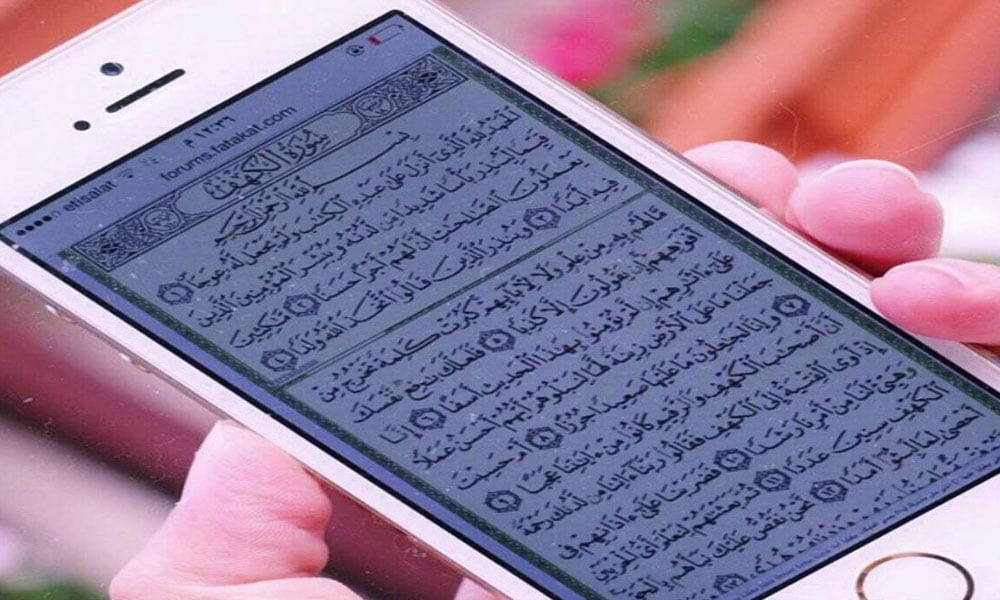 etisalat ١٢:٣٦ م
forums.fatakat.com
سُورَةُ الكَهْفِ
بِسْمِ ٱللَّهِ ٱلرَّحْمَٰنِ ٱلرَّحِيمِ
ٱلْحَمْدُ لِلَّهِ ٱلَّذِىٓ أَنزَلَ عَلَىٰ عَبْدِهِ ٱلْكِتَٰبَ وَلَمْ يَجْعَل لَّهُۥ عِوَجَا ١
قَيِّمًا لِّيُنذِرَ بَأْسًا شَدِيدًا مِّن لَّدُنْهُ وَيُبَشِّرَ ٱلْمُؤْمِنِينَ ٱلَّذِينَ
يَعْمَلُونَ ٱلصَّٰلِحَٰتِ أَنَّ لَهُمْ أَجْرًا حَسَنًا ٢ مَّٰكِثِينَ
فِيهِ أَبَدًا ٣ وَيُنذِرَ ٱلَّذِينَ قَالُوا۟ ٱتَّخَذَ ٱللَّهُ وَلَدًا ٤
مَّا لَهُم بِهِۦ مِنْ عِلْمٍ وَلَا لِءَابَآئِهِمْ كَبُرَتْ كَلِمَةً تَخْرُجُ مِنْ
أَفْوَٰهِهِمْ إِن يَقُولُونَ إِلَّا كَذِبًا ٥ فَلَعَلَّكَ بَٰخِعٌ نَّفْسَكَ
عَلَىٰٓ ءَاثَٰرِهِمْ إِن لَّمْ يُؤْمِنُوا۟ بِهَٰذَا ٱلْحَدِيثِ أَسَفًا ٦ إِنَّا
جَعَلْنَا مَا عَلَى ٱلْأَرْضِ زِينَةً لَّهَا لِنَبْلُوَهُمْ أَيُّهُمْ أَحْسَنُ عَمَلًا
٧ وَإِنَّا لَجَٰعِلُونَ مَا عَلَيْهَا صَعِيدًا جُرُزًا ٨ أَمْ حَسِبْتَ
أَنَّ أَصْحَٰبَ ٱلْكَهْفِ وَٱلرَّقِيمِ كَانُوا۟ مِنْ ءَايَٰتِنَا عَجَبًا ٩
إِذْ أَوَى ٱلْفِتْيَةُ إِلَى ٱلْكَهْفِ فَقَالُوا۟ رَبَّنَآ ءَاتِنَا مِن لَّدُنكَ رَحْمَةً
وَهَيِّئْ لَنَا مِنْ أَمْرِنَا رَشَدًا ١٠ فَضَرَبْنَا عَلَىٰٓ ءَاذَانِهِمْ فِى
ٱلْكَهْفِ سِنِينَ عَدَدًا ١١ ثُمَّ بَعَثْنَٰهُمْ لِنَعْلَمَ أَىُّ ٱلْحِزْبَيْنِ
أَحْصَىٰ لِمَا لَبِثُوٓا۟ أَمَدًا ١٢ نَّحْنُ نَقُصُّ عَلَيْكَ نَبَأَهُم بِٱلْحَقِّ